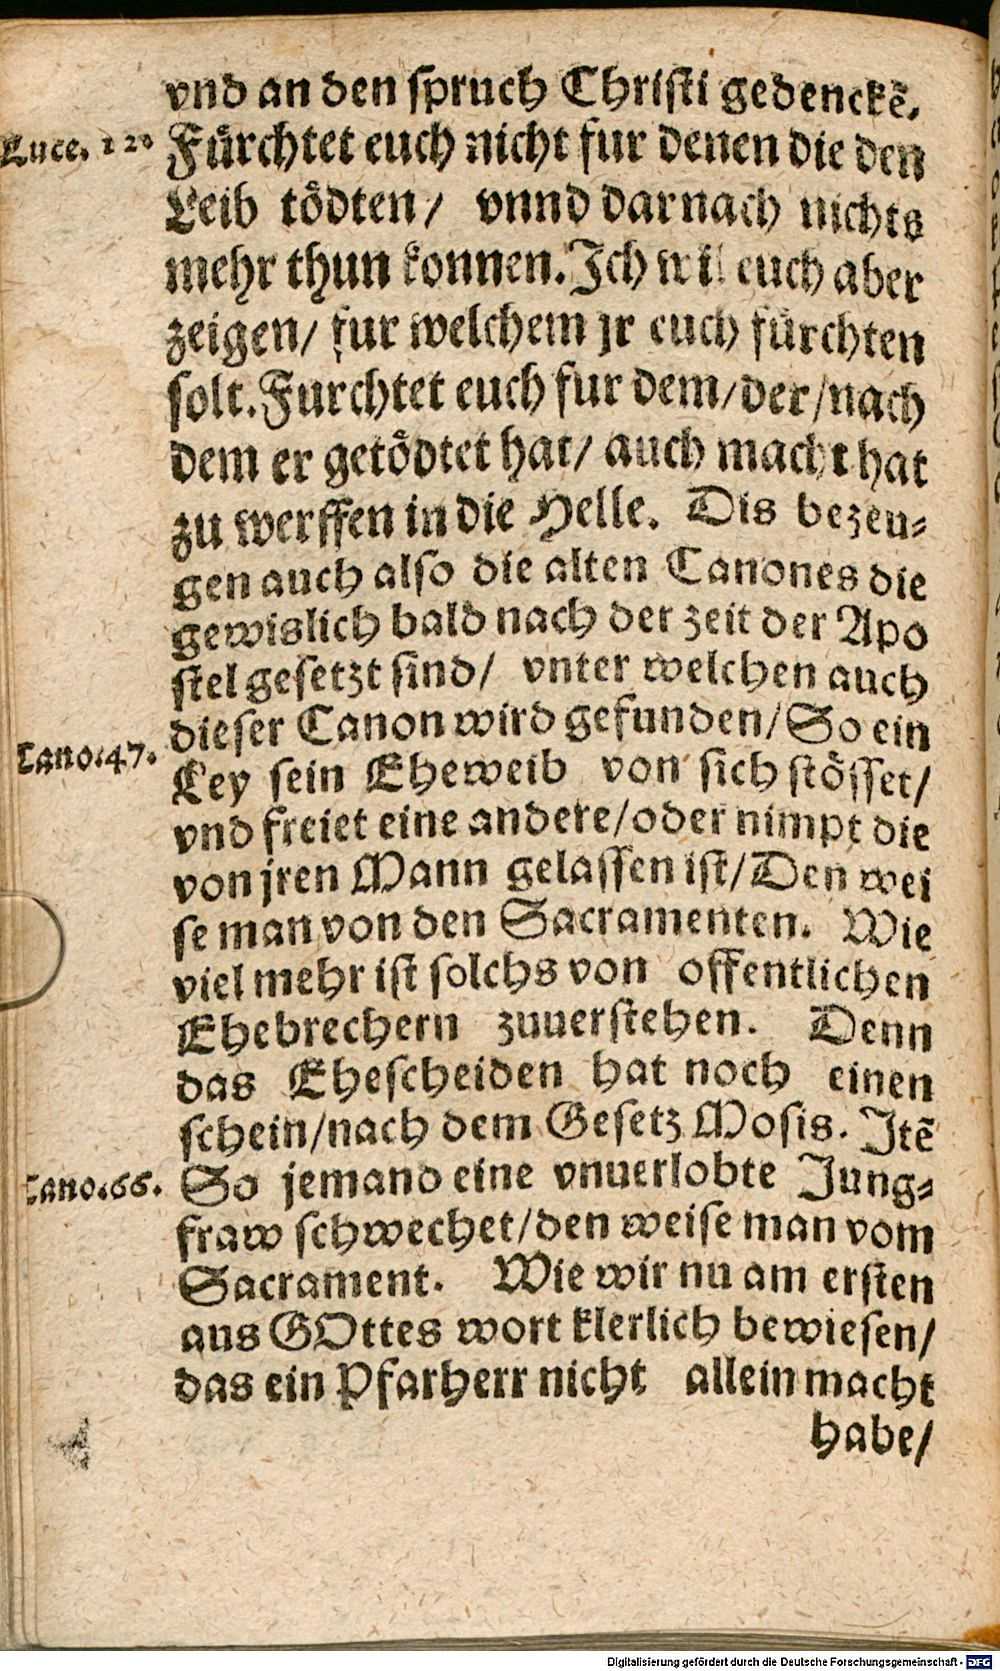 vnd an den spruch Christi gedenckē.
Luce. 12.
Fürchtet euch nicht fur denen die den
Leib tödten/ vnnd darnach nichts
mehr thun konnen. Jch wil euch aber
zeigen/ fur welchem jr euch fürchten
solt. Furchtet euch fur dem/ der/ nach
dem er getödtet hat/ auch macht hat
zu werffen in die Helle. Dis bezeu-
gen auch also die alten Canones die
gewislich bald nach der zeit der Apo
stel gesetzt sind/ vnter welchen auch
dieser Canon wird gefunden/ So ein
Cano. 47.
Ley sein Eheweib von sich stösset/
vnd freiet eine andere/ oder nimpt die
von jren Mann gelassen ist/ Den wei
se man von den Sacramenten. Wie
viel mehr ist solchs von offentlichen
Ehebrechern zuuerstehen. Denn
das Ehescheiden hat noch einen
schein/ nach dem Gesetz Mosis. Jtē
Cano. 66.
So jemand eine vnuerlobte Jung-
fraw schwechet/ den weise man vom
Sacrament. Wie wir nu am ersten
aus GOttes wort klerlich bewiesen/
das ein Pfarherr nicht allein macht
habe/
Digitalisierung gefördert durch die Deutsche Forschungsgemeinschaft - DFG